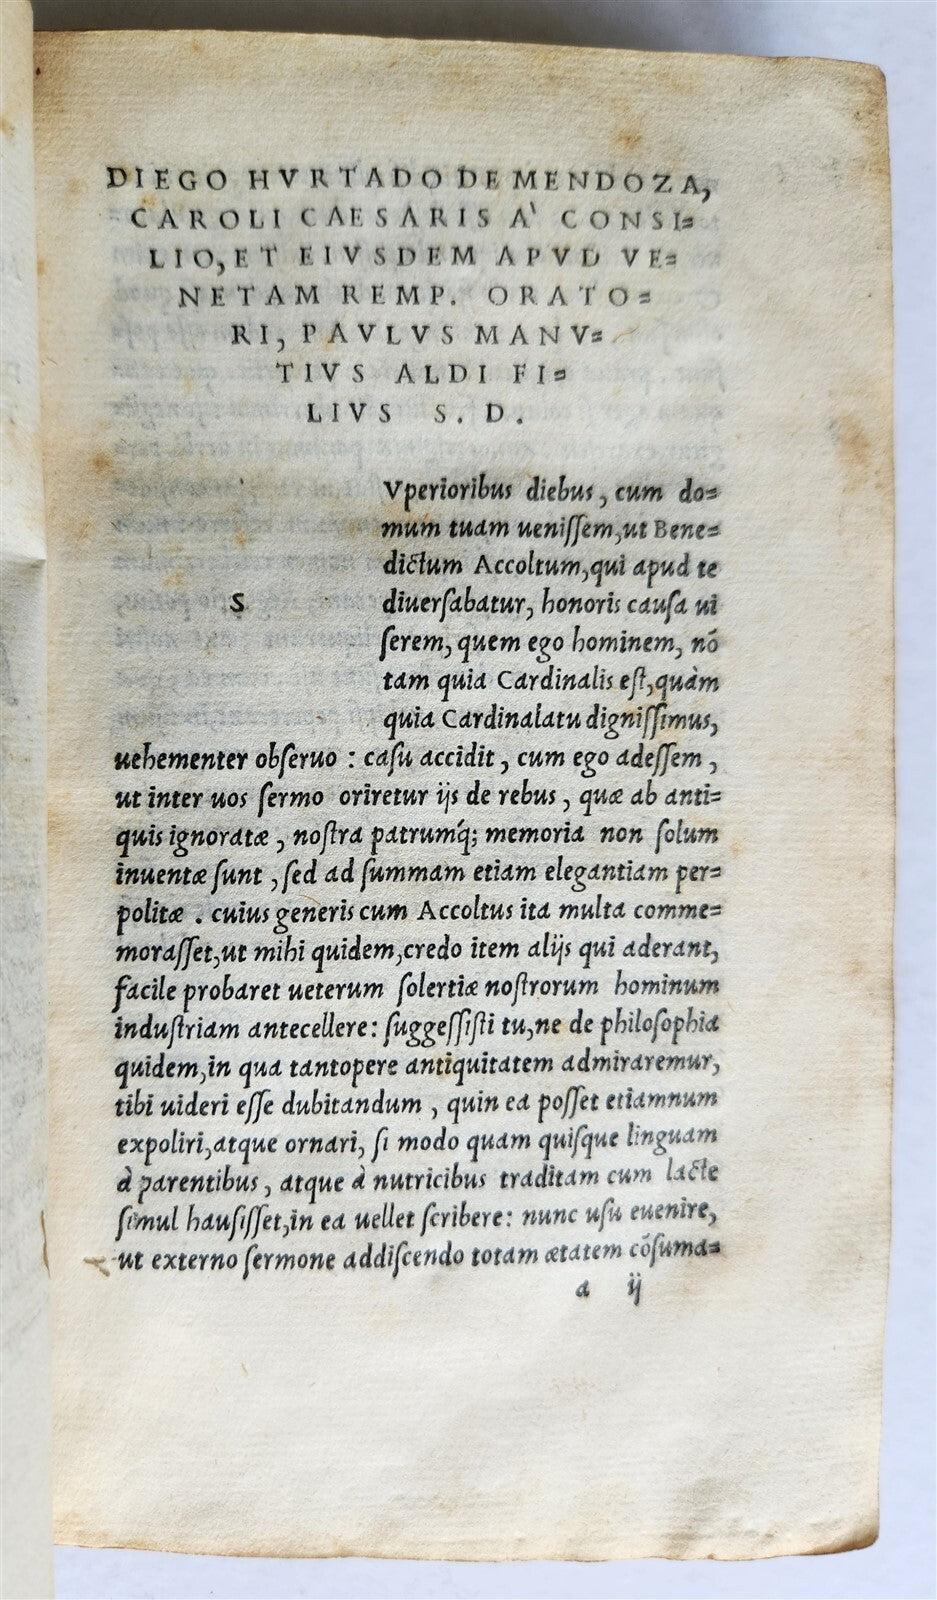 DIEGO HVRTADO DE MENDOZA,
CAROLI CAESARIS A' CONSI=
LIO, ET EIVSDEM APVD VE=
NETAM REMP. ORATO=
RI, PAVLVS MANV=
TIVS ALDI FI=
LIVS S. D.
S
Vperioribus diebus, cum do=
mum tuam uenissem, ut Bene=
dictum Accoltum, qui apud te
diuersabatur, honoris causa ui
serem, quem ego hominem, nõ
tam quia Cardinalis est, quàm
quia Cardinalatu dignissimus,
uehementer obseruo : casu accidit, cum ego adessem,
ut inter uos sermo oriretur ijs de rebus, quæ ab anti=
quis ignoratæ, nostra patrumq́; memoria non solum
inuentæ sunt, sed ad summam etiam elegantiam per=
politæ. cuius generis cum Accoltus ita multa comme=
morasset, ut mihi quidem, credo item alijs qui aderant,
facile probaret ueterum solertiæ nostrorum hominum
industriam antecellere: suggessisti tu, ne de philosophia
quidem, in qua tantopere antiquitatem admiraremur,
tibi uideri esse dubitandum, quin ea posset etiamnum
expoliri, atque ornari, si modo quam quisque linguam
à parentibus, atque à nutricibus traditam cum lacte
simul hausisset, in ea uellet scribere: nunc usu euenire,
ut externo sermone addiscendo totam ætatem cõsuma=
a ij